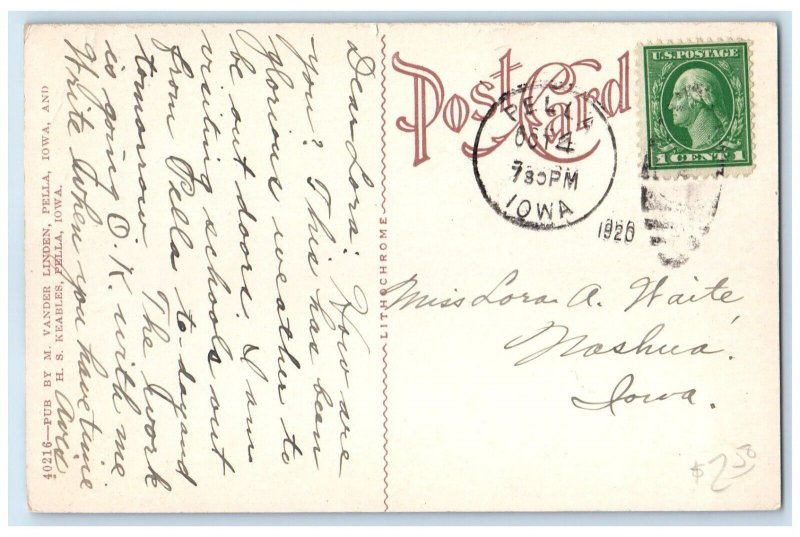 Dear Lora: How are
you? This has been
glorious weather to
be out doors. I am
visiting schools out
from Pella to-day and
tomorrow. The work
is going O.K. with me
Write when you have time
40216—PUB BY M. VANDER LINDEN, PELLA, IOWA, AND
H. S. KEABLES, PELLA, IOWA.
LITHOCHROME
Post Card
PELLA
OCT 4
730PM
IOWA
1920
U.S.POSTAGE
1 CENT 1
Miss Lora A. Waite,
Nashua,
Iowa.
$2.50